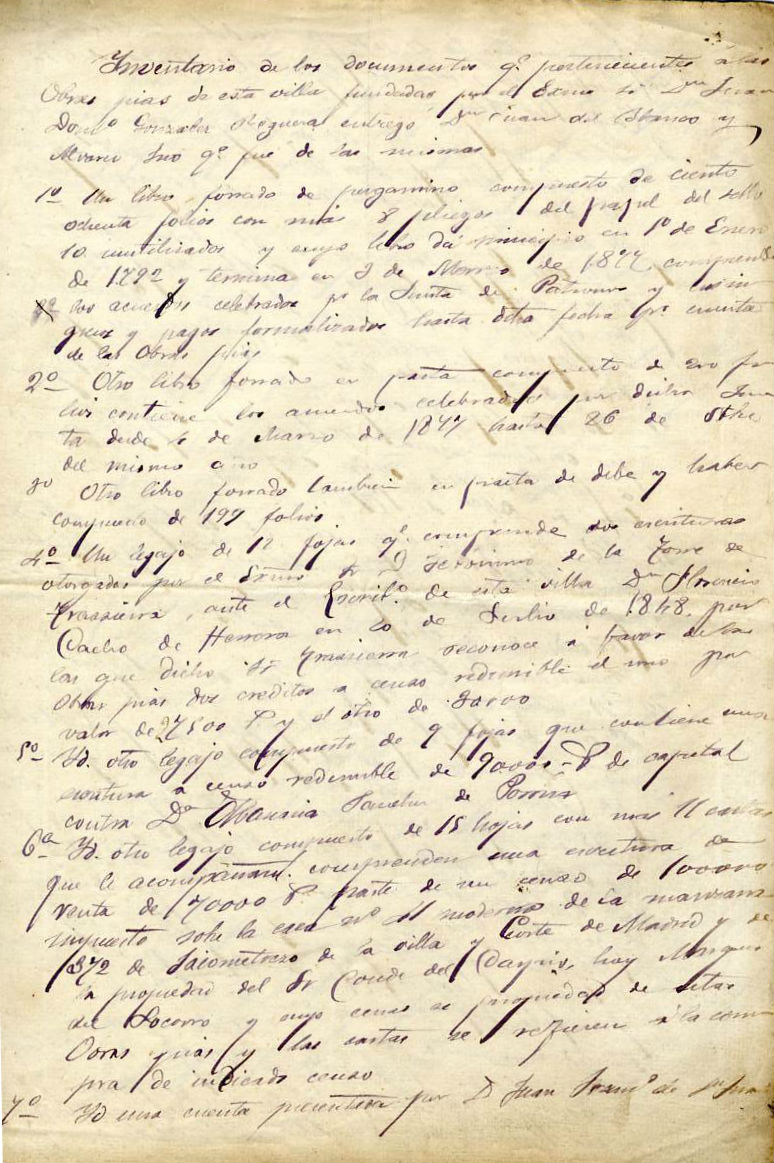 Inventario de los documentos q.e pertenecientes á las
Obras pias de esta villa fundadas por el Exmo Sr. Dn Juan
Dom.o Gonzalez Reguera entregó Dn Juan del Blanco y
Alvaro que fué de las mismas
1º Un libro forrado de pergamino compuesto de ciento
ochenta folios con más 8 pliegos del papel del sello
10 inutilizados y cuyo libro dá principio en 1º de Enero
de 1792 y termina en 3 de Marzo de 1877. comprende
los acuerdos celebrados pr la Junta de Patronos y
gresos y pagos formalizados hasta dha fecha pr cuenta
de las Obras pias
2º Otro libro forrado en pasta compuesto de 200 fo
lios contiene los acuerdos celebrados por dicha Jun
ta desde 4 de Marzo de 1877 hasta 26 de
del mismo año
3º Otro libro forrado tambien en pasta de debe y haber
compuesto de 197 folios
4º Un legajo de 12 fojas q.e comprende dos escrituras
otorgadas por el Exmo Sr. D Jerónimo de la Torre de
Trassierra, ante el Escrib.o de esta villa Dn Florencio
Cacho de Herrera en 20 de Julio de 1848. por
las que dicho Sr Trassierra reconoce á favor de las
Obras pias dos creditos a censo redimible el uno por
valor de 27500 r y el otro de
5º Yd. otro legajo compuesto de 9 fojas que contiene una
escritura a censo redimible de 90000 r de capital
contra Da Sanchez de Porrua
6ª Yd. otro legajo compuesto de 15 hojas con más 11 cartas
que le acompañan. comprenden una escritura de
venta de 70000 r parte de un censo de 100000
impuesto sobre la casa nº 41 moderno de la manzana
372 de Jacometrezo de la villa y Corte de Madrid y de
la propiedad del Sr Conde del hoy Marques
del Socorro y cuyo censo es propiedad de estas
Obras pias y las cartas se refieren á la com
pra de indicado censo
7º Yd una cuenta presentada por D Juan de